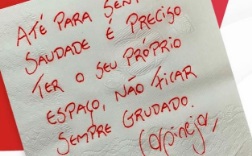 ATÉ PARA SENTIR
SAUDADE É PRECISO
TER O SEU PRÓPRIO
ESPAÇO, NÃO FICAR
SEMPRE GRUDADO.
Carpinejar